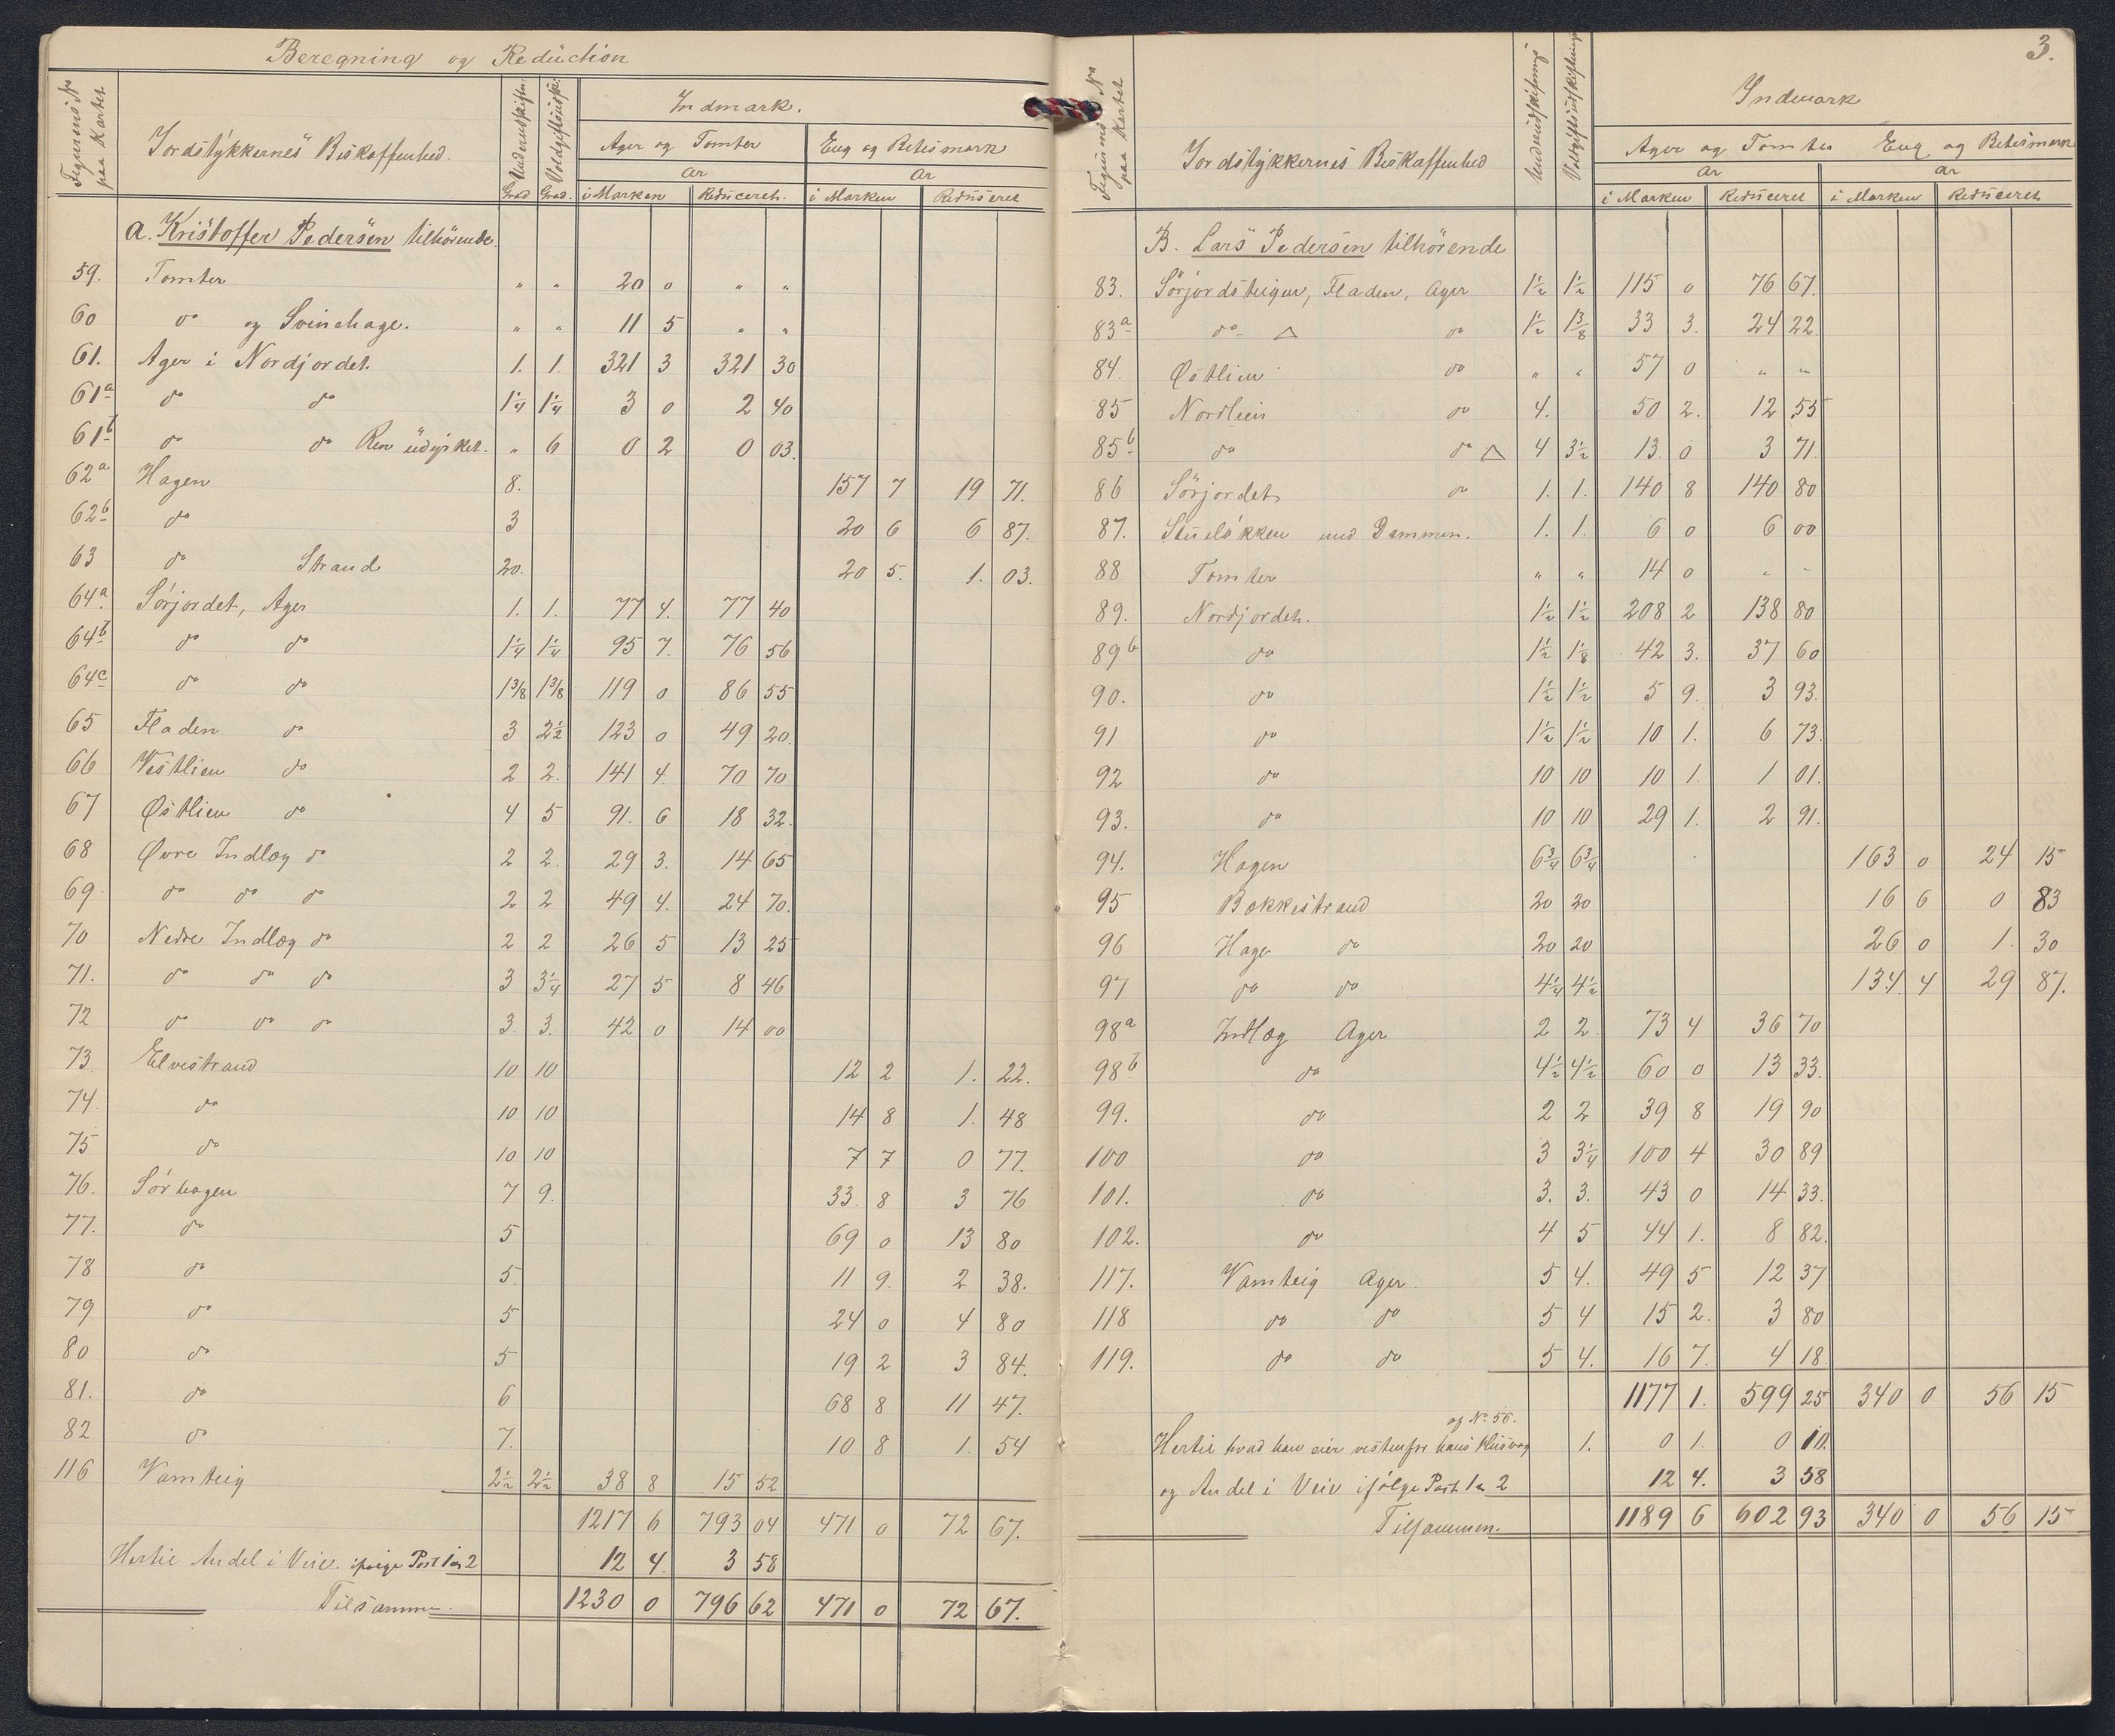 Beregning og Reduction
Figurens No paa Kartet
Jordstykkernes Beskaffenhed.
Grad Grad.
Indmark.
Ager og Tomter Eng og Beitesmark
ar ar
i Marken Reduceret. i Marken Reduceret
a. Kristoffer Pedersen tilhörende.
59. Tomter " " 20 0 " "
60 do og Svinehage. " " 11 5 " "
61. Ager i Nordjordet. 1. 1. 321 3 321 30
61a do do 1¼ 1¼ 3 0 2 40
61b do do Ren udyrket. " 6 0 2 0 03.
62a Hagen 8. 157 7 19 71.
62b do 3 20 6 6 87.
63 do Strand 20. 20 5. 1. 03.
64a Sörjordet, Ager 1. 1. 77 4. 77 40
64b do do 1¼ 1¼ 95 7. 76 56
64c do do 1 3/8 1 3/8 119 0 86 55
65 Fladen do 3 2½ 123 0 49 20.
66 Vestlien do 2 2. 141 4. 70 70
67 Østlien do 4 5 91. 6 18 32.
68 Øvre Indlæg do 2 2. 29 3. 14 65
69 do do do 2 2 49 4. 24 70.
70 Nedre Indlæg do 2 2 26 5 13 25
71. do do do 3 3¼ 27 5 8 46
72 do do do 3. 3. 42 0 14 00
73. Elvestrand 10 10 12 2 1. 22.
74. do 10 10 14 8 1. 48
75 do 10 10 7 7 0 77.
76. Sörhagen 7 9. 33. 8 3 76
77. do 5 69 0 13 80
78 do 5. 11 9. 2 38.
79 do 5 24 0 4 80
80 do 5 19 2 3 84.
81. do 6 68 8 11 47.
82 do 7. 10 8 1. 54
116 Vamteig 2½ 2½ 38 8 15 52
1217 6 793 04 471 0 72 67.
Hertil Andel i Veie. ifølge Post 1 og 2 12 4. 3 58
Tilsammen. 1230 0 796 62 471 0 72 67.
3.
Figurens No paa Kartet
Jordstykkernes Beskaffenhed
Indmark
Ager og Tomter Eng og Beitesmark
ar ar
i Marken Reduceret i Marken Reduceret
B. Lars Pedersen tilhörende
83. Sörjordsteigen, Fladen, Ager 1½ 1½ 115 0 76 67.
83a do △ do 1½ 1 3/8 33 3. 24 22
84. Østlien do " " 57 0 " "
85 Nordlien do 4. 50 2. 12 55
85b do do △ 4 3½ 13. 0 3 71.
86 Sörjordet do 1. 1. 140 8 140 80
87. Stuelökken med Dammen. 1. 1. 6 0 6 00
88 Tomter " " 14 0 " "
89. Nordjordet. 1½ 1½ 208 2 138 80
89b do 1½ 1⅛ 42 3. 37 60
90. do 1½ 1½ 5 9. 3 93.
91 do 1½ 1½ 10 1. 6 73.
92 do 10 10 10 1. 1 01.
93. do 10 10 29 1. 2 91.
94. Hagen 6¾ 6¾ 163 0 24 15
95 Bækkestrand 20 20 16 6 0 83
96 Hage do 20 20 26 0 1. 30
97 do do 4½ 4½ 134 4 29 87.
98a Indlæg Ager 2 2. 73 4 36 70
98b do 4½ 4½ 60 0 13 33.
99. do 2 2 39 8 19 90
100 do 3 3¼ 100 4 30 89
101. do 3. 3. 43 0 14 33.
102. do 4 5 44 1. 8 82.
117. Vamteig Ager. 5 4. 49 5 12 37
118 do do 5 4 15 2. 3 80
119. do do 5 4. 16 7. 4 18
1177 1. 599 25 340 0 56 15
Hertil hvad han eier vestenfor hans Husvæg og No 56. 1. 0 1. 0 10.
og Andel i Veie ifølge Post 1 og 2 12 4. 3 58
Tilsammen. 1189 6 602 93 340 0 56 15